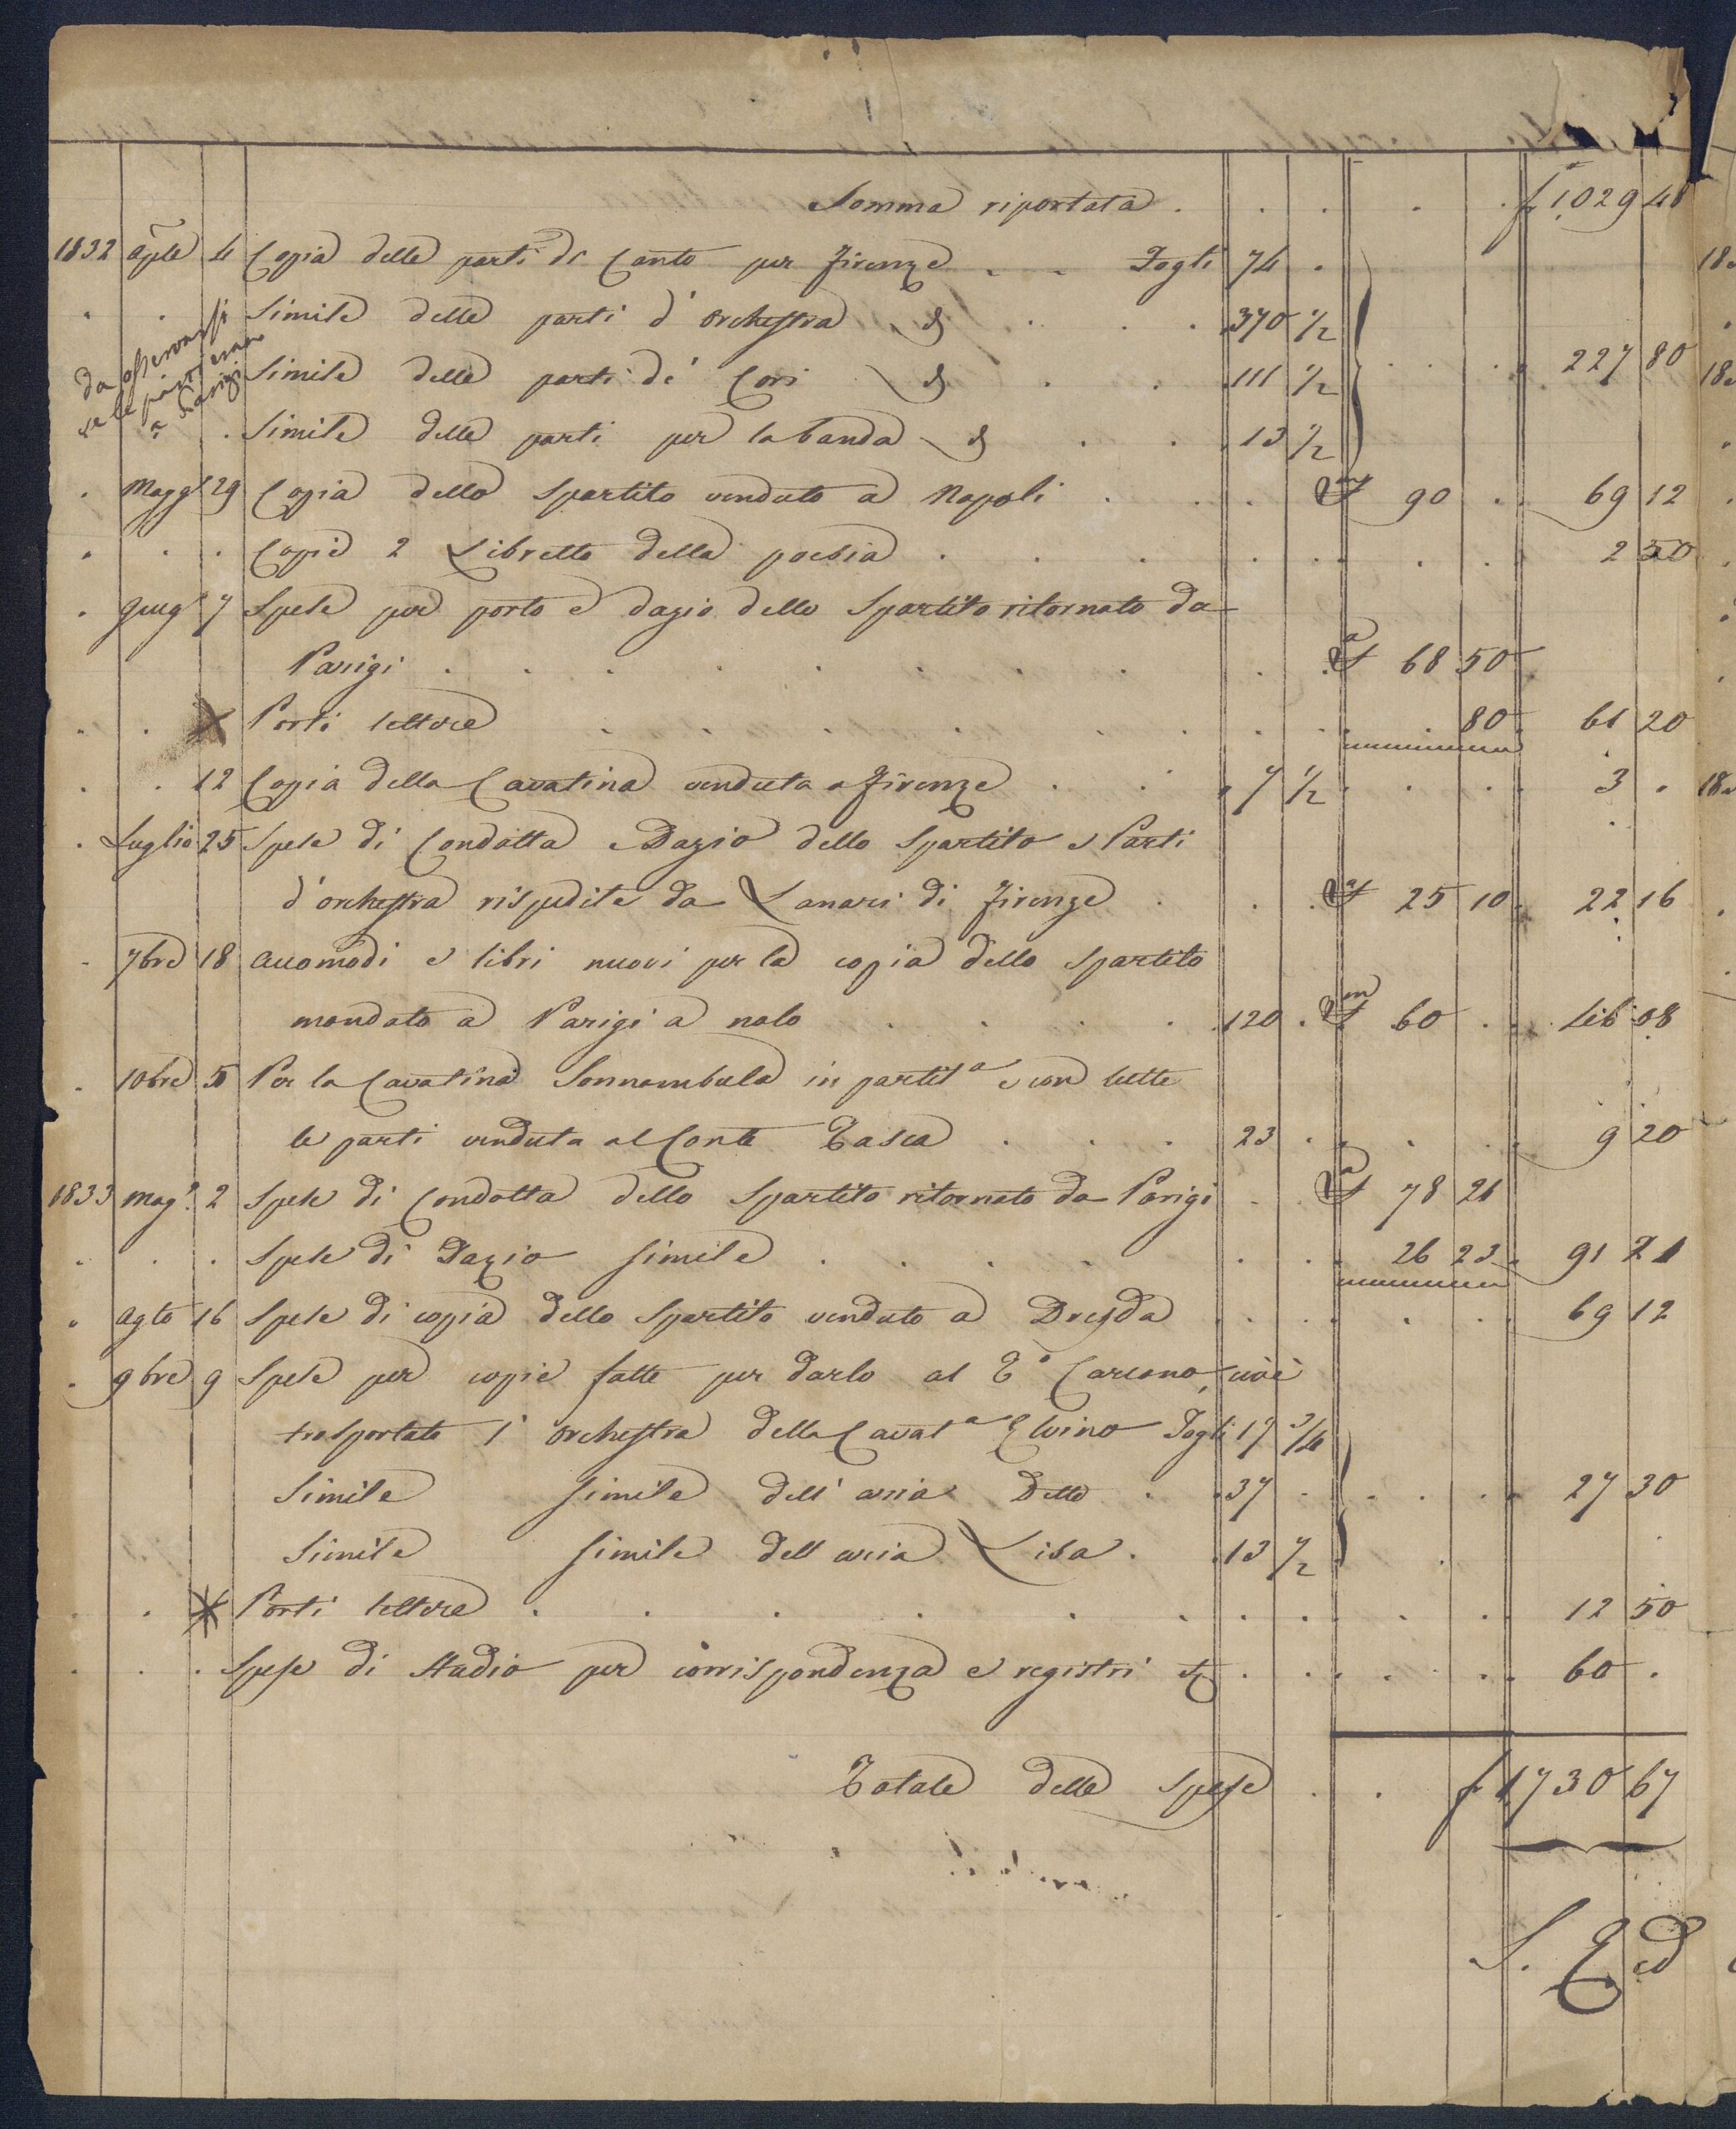 Somma riportata . . . . . . f 1029 48
1832 Aple 4 Copia delle parti di Canto per Firenze . . Fogli 74 .
. . Simile delle parti d'Orchestra . . . 370 1/2
da osservarsi
se le parti erano
a Parigi
Simile delle parti de' Cori . . . 111 1/2 . . . 227 80
. Simile delle parti per la banda . . . 13 1/2
. Magg. 29 Copia dello Spartito venduto a Napoli . . . 90 . . 69 12
. . . Copie 2 Libretto della poesia . . . . . . . . 2 50
. Giug. 7 Spese per porto e dazio dello Spartito ritornato da
Parigi . . . . . . . . . 68 50
. . Porti lettere . . . . . . . . . 80 . 61 20
. . 12 Copia della Cavatina venduta a Firenze . . . 7 1/2 . . . . 3 .
. Luglio 25 Spese di Condotta e Dazio dello Spartito e Parti
d'orchestra rispedite da Lanari di Firenze . . . 25 10 . 22 16
. 7bre 18 Accomodi e libri nuovi per la copia dello Spartito
mandato a Parigi a nolo . . . . 120 . 60 . . 46 08
. 10bre 5 Per la Cavatina Sonnambula in partita e con tutte
le parti venduta al Conte Tasca . . . 23 . . . . . 9 20
1833 Mag.o 2 Spese di Condotta dello Spartito ritornato da Parigi . . 78 21
. . . Spese di Dazio simile . . . . . . . 26 23 . 91 21
. Agto 16 Spese di copia dello Spartito venduto a Dresda . . . . . 69 12
. 9bre 9 Spese per copie fatte per darlo al To Carcano, cioè
trasportato l'orchestra della Cavata Elvino Fogli 17 3/4
Simile simile dell'aria Detto . . 37 . . . . . 27 30
Simile simile dell'aria Lisa . . 13 1/2 .
. . Porti lettere . . . . . . . . . . . 12 50
. . . Spese di Studio per corrispondenza e registri . . . . . . 60 .
Totale delle Spese . . f 1730 67
S. E & O